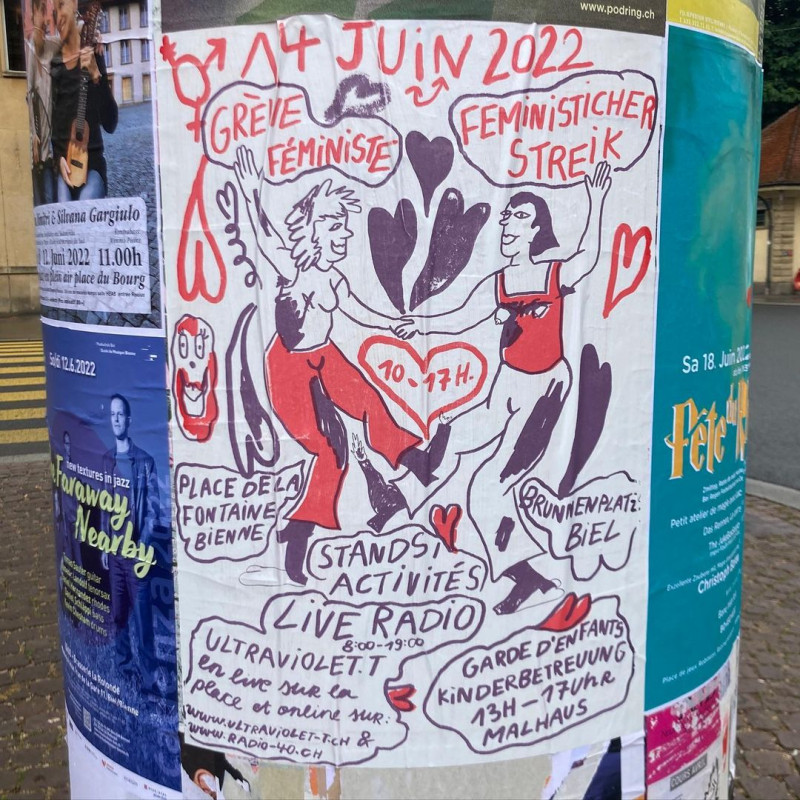 www.podring.ch
14 JUIN 2022
GRÈVE
FÉMINISTE
FEMINISTICHER
STREIK
10-17H.
PLACE DE LA
FONTAINE
BIENNE
BRUNNENPLATZ
BIEL
STANDS,
ACTIVITÉS
LIVE RADIO
8:00-19:00
ULTRAVIOLET.T
en live sur la
place et online sur:
www.ULTRAVIOLET-T.CH &
www.RADIO-40.CH
GARDE D'ENFANTS
KINDERBETREUUNG
13H-17UHR
MALHAUS
& Silvana Gargiulo
12. Juni 2022 11.00h
air place du Bourg
12.6.2022
new textures in jazz
Faraway
Nearby
guitar
tenorsax
rhodes
bass
drums
Sa 18. Juin
Fête
Petit atelier de
Christoph